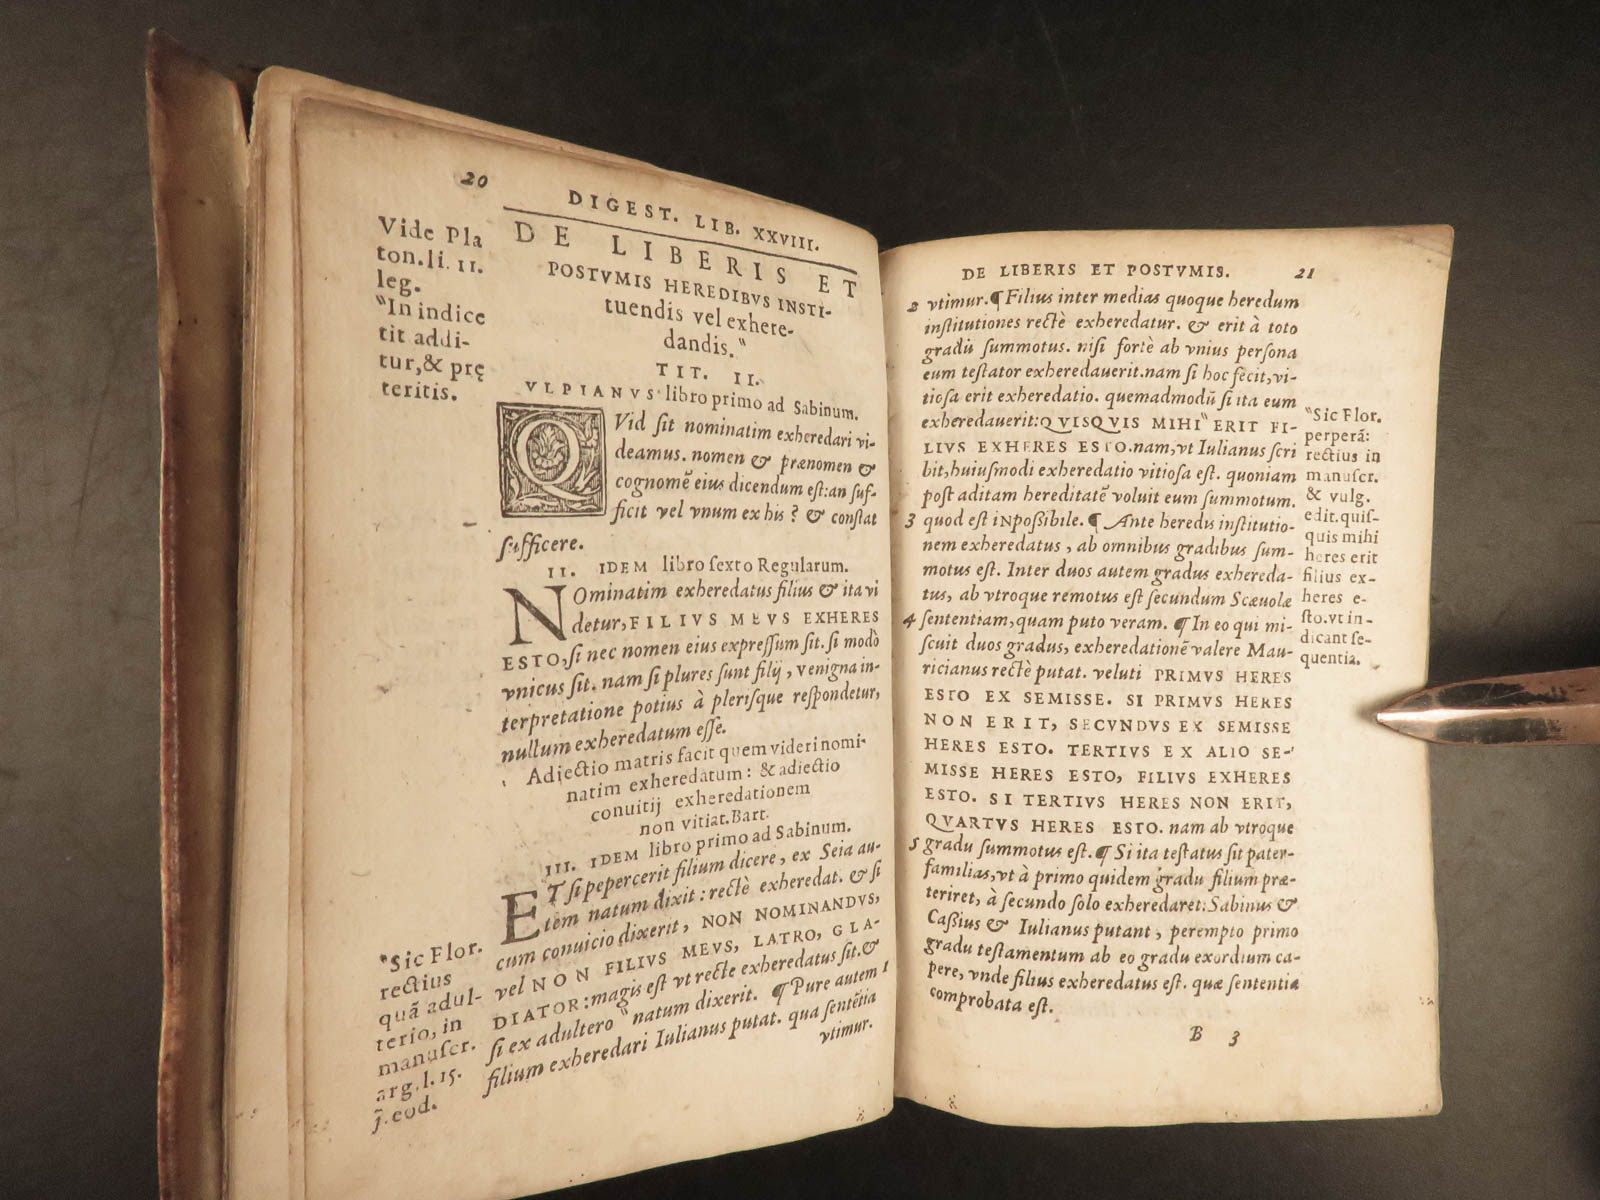 20
DIGEST. LIB. XXVIII.
DE LIBERIS ET
POSTVMIS HEREDIBVS INSTI-
tuendis vel exhere-
dandis."
TIT. II.
Vide Pla
ton. li. 11.
leg.
"In indice
tit addi-
tur, & prę
teritis.
VLPIANVS libro primo ad Sabinum.
QVid sit nominatim exheredari vi-
deamus. nomen & prænomen &
cognomē eius dicendum est: an suf-
ficit vel vnum ex his? & constat
sufficere.
II. IDEM libro sexto Regularum.
NOminatim exheredatus filius & ita vi
detur, FILIVS MEVS EXHERES
ESTO, si nec nomen eius expressum sit. si modò
vnicus sit. nam si plures sunt filij, venigna in-
terpretatione potius à plerisque respondetur,
nullum exheredatum esse.
Adiectio matris facit quem videri nomi-
natim exheredatum: & adiectio
conuitij exheredationem
non vitiat. Bart.
III. IDEM libro primo ad Sabinum.
ET si pepercerit filium dicere, ex Seia au-
tem natum dixit: rectè exheredat. & si
cum conuicio dixerit, NON NOMINANDVS,
vel NON FILIVS MEVS, LATRO, GLA-
DIATOR: magis est vt recte exheredatus sit. &
si ex adultero "natum dixerit. ¶ Pure autem 1
filium exheredari Iulianus putat. qua sentētia
vtimur.
"Sic Flor.
rectius
quā adul-
terio, in
manuscr.
arg. l. 15.
j. eod.
DE LIBERIS ET POSTVMIS. 21
2 vtimur. ¶ Filius inter medias quoque heredum
institutiones rectè exheredatur. & erit à toto
gradū summotus. nisi fortè ab vnius persona
eum testator exheredauerit. nam si hoc fecit, vi-
tiosa erit exheredatio. quemadmodū si ita eum
exheredauerit: QVISQVIS MIHI" ERIT FI-
LIVS EXHERES ESTO. nam, vt Iulianus scri
bit, huiusmodi exheredatio vitiosa est. quoniam
post aditam hereditatē voluit eum summotum.
3 quod est iNpoßibile. ¶ Ante heredis institutio-
nem exheredatus, ab omnibus gradibus sum-
motus est. Inter duos autem gradus exhereda-
tus, ab vtroque remotus est secundum Scæuolæ
4 sententiam, quam puto veram. ¶ In eo qui mi-
scuit duos gradus, exheredationē valere Mau-
ricianus rectè putat. veluti PRIMVS HERES
ESTO EX SEMISSE. SI PRIMVS HERES
NON ERIT, SECVNDVS EX SEMISSE
HERES ESTO. TERTIVS EX ALIO SE-
MISSE HERES ESTO, FILIVS EXHERES
ESTO. SI TERTIVS HERES NON ERIT,
QVARTVS HERES ESTO. nam ab vtroque
5 gradu summotus est. ¶ Si ita testatus sit pater-
familias, vt à primo quidem gradu filium præ-
teriret, à secundo solo exheredaret: Sabinus &
Caßius & Iulianus putant, perempto primo
gradu testamentum ab eo gradu exordium ca-
pere, vnde filius exheredatus est. quæ sententia
comprobata est.
"Sic Flor.
perperā:
rectius in
manuscr.
& vulg.
edit. quis-
quis mihi
heres erit
filius ex-
heres e-
sto. vt in-
dicant se-
quentia.
B 3